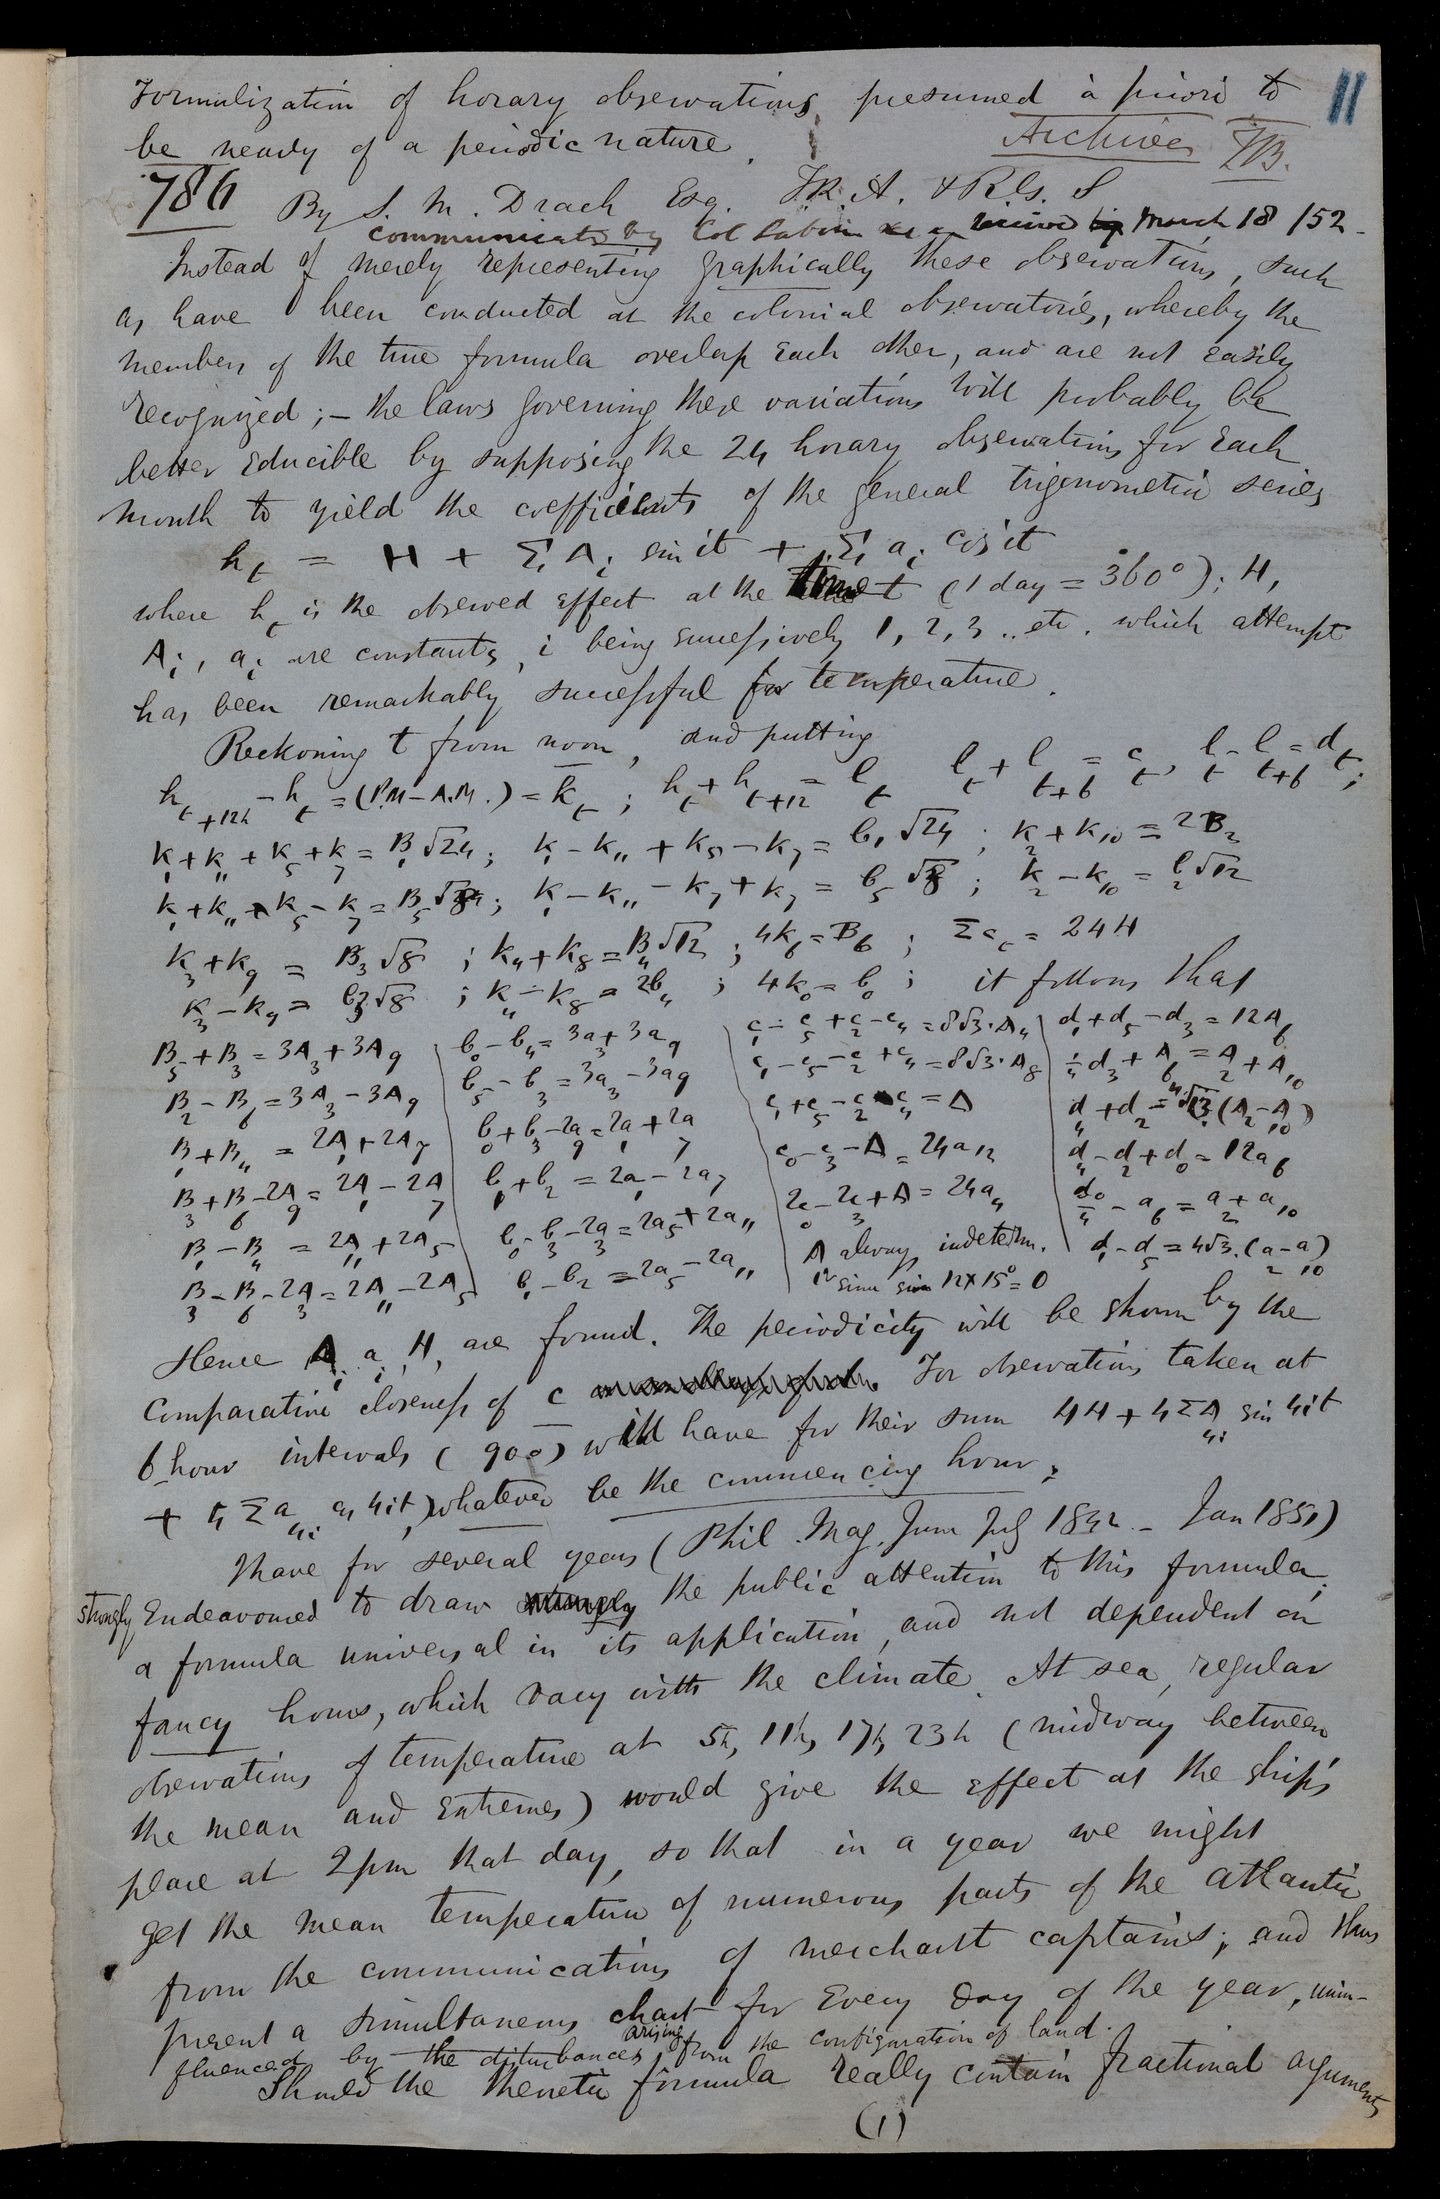 Formulization of horary observations, presumed à priori to
11
be nearly of a periodic nature.
Archives
786
By S. M. Drach Esq. F.R.A. & R.G.S
communicated by Col Sabine March 18 /52
Instead of merely representing graphically these observations, such
as have been conducted at the colonial observatories, whereby the
members of the true formula overlap each other, and are not easily
recognized; – the laws governing these variations will probably be
better educible by supposing the 24 horary observations for each
month to yield the coefficients of the general trigonometric series
h_t = H + Σ A_i sin it + Σ a_i cos it
where h_t is the observed effect at the time t (1 day = 360°); H,
A_i, a_i are constants, i being successively 1, 2, 3 .. etc. which attempt
has been remarkably successful for temperature.
Reckoning t from noon, and putting
h_{t+12h} – h_t = (P.M – A.M.) = k_t ; h_t + h_{t+12} = l_t l_t + l_{t+6} = c_t, l_t – l_{t+6} = d_t;
k_1 + k_11 + k_5 + k_7 = B_1 √24; k_1 – k_11 + k_5 – k_7 = b_1 √24 ; k_2 + k_10 = 2B_2
k_1 + k_11 – k_5 – k_7 = B_5 √8; k_1 – k_11 – k_5 + k_7 = b_5 √8 ; k_2 – k_10 = b_2 √12
k_3 + k_9 = B_3 √8 ; k_4 + k_8 = B_4 √12 ; 4k_6 = B_6 ; Σc_t = 24H
k_3 – k_9 = b_3 √8 ; k_4 – k_8 = 2b_4 ; 4k_0 = b_0 ; it follows that
B_5 + B_3 = 3A_3 + 3A_9 b_0 – b_4 = 3a_3 + 3a_9 c_1 – c_5 + c_2 – c_4 = 8√3.A_4 d_1 + d_5 – d_3 = 12A_6
B_2 – B_6 = 3A_3 – 3A_9 b_5 – b_3 = 3a_3 – 3a_9 c_1 – c_5 – c_2 + c_4 = 8√3.A_8 ¼ d_3 + A_6 = A_2 + A_10
B_1 + B_4 = 2A_1 + 2A_7 b_0 + b_3 – 2a_9 = 2a_1 + 2a_7 c_1 + c_5 – c_2 – c_4 = Δ d_4 + d_2 = 4√3.(A_2 – A_10)
B_3 + B_6 – 2A_9 = 2A_1 – 2A_7 b_1 + b_2 = 2a_1 – 2a_7 c_0 – c_3 – Δ = 24a_12 d_4 – d_2 + d_0 = 12a_6
B_1 – B_4 = 2A_11 + 2A_5 b_0 – b_3 – 2a_3 = 2a_5 + 2a_11 2c_0 – 2c_3 + Δ = 24a_4 d_0/4 – a_6 = a_2 + a_10
B_3 – B_6 – 2A_3 = 2A_11 – 2A_5 b_1 – b_2 = 2a_5 – 2a_11 A_12 always indeterm. d_1 – d_5 = 4√3.(a_2 – a_10)
since sin 12 × 15° = 0
Hence A_i a_i H, are found. The periodicity will be shown by the
comparative closeness of c For observations taken at
6 hour intervals (90°) will have for their sum 4H + 4ΣA_{4i} sin 4it
+ 4Σa_{4i} cos 4it, whatever be the commencing hour.
I have for several years (Phil. Mag. June July 1842 – Jan 1851)
strongly endeavoured to draw the public attention to this formula;
a formula universal in its application, and not dependent on
fancy hours, which vary with the climate. At sea, regular
observations of temperature at 5h, 11h, 17h, 23h (midway between
the mean and extremes) would give the effect at the ship's
place at 2pm that day, so that in a year we might
get the mean temperature of numerous parts of the Atlantic
from the communications of merchant captains; and thus
present a simultaneous chart for every day of the year, unin-
fluenced by the disturbances arising from the configuration of land.
Should the theoretic formula really contain fractional arguments
(1)